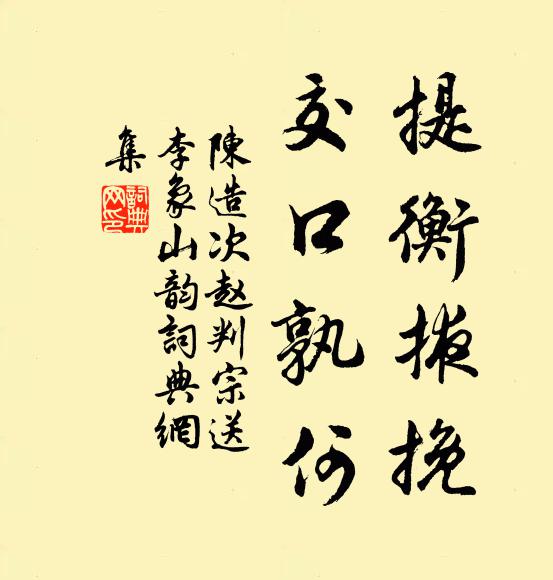 提衡掖挽
交口孰何
陳造次赵判宗送
李象山韵詞典網
集
詞典網印